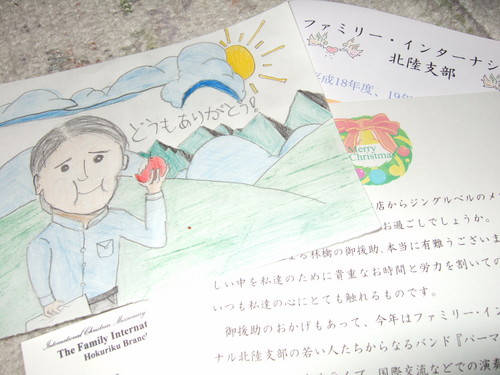 どうもありがとう!
International Christian Missionary
The Family Internat
Hokuriku Branch
ファミリー・インターナシ
北陸支部
平成18年度、19年
Merry
Christmas
店からジングルベルのメ
お過ごしでしょうか。
林檎の御援助、本当に有難うございま
しい中を私達のために貴重なお時間と労力を割いての
いつも私達の心にとても触れるものです。
御援助のおかげもあって、今年はファミリー・イン
ナル北陸支部の若い人たちからなるバンド『パーマ
ライブ、国際交流などでの演奏